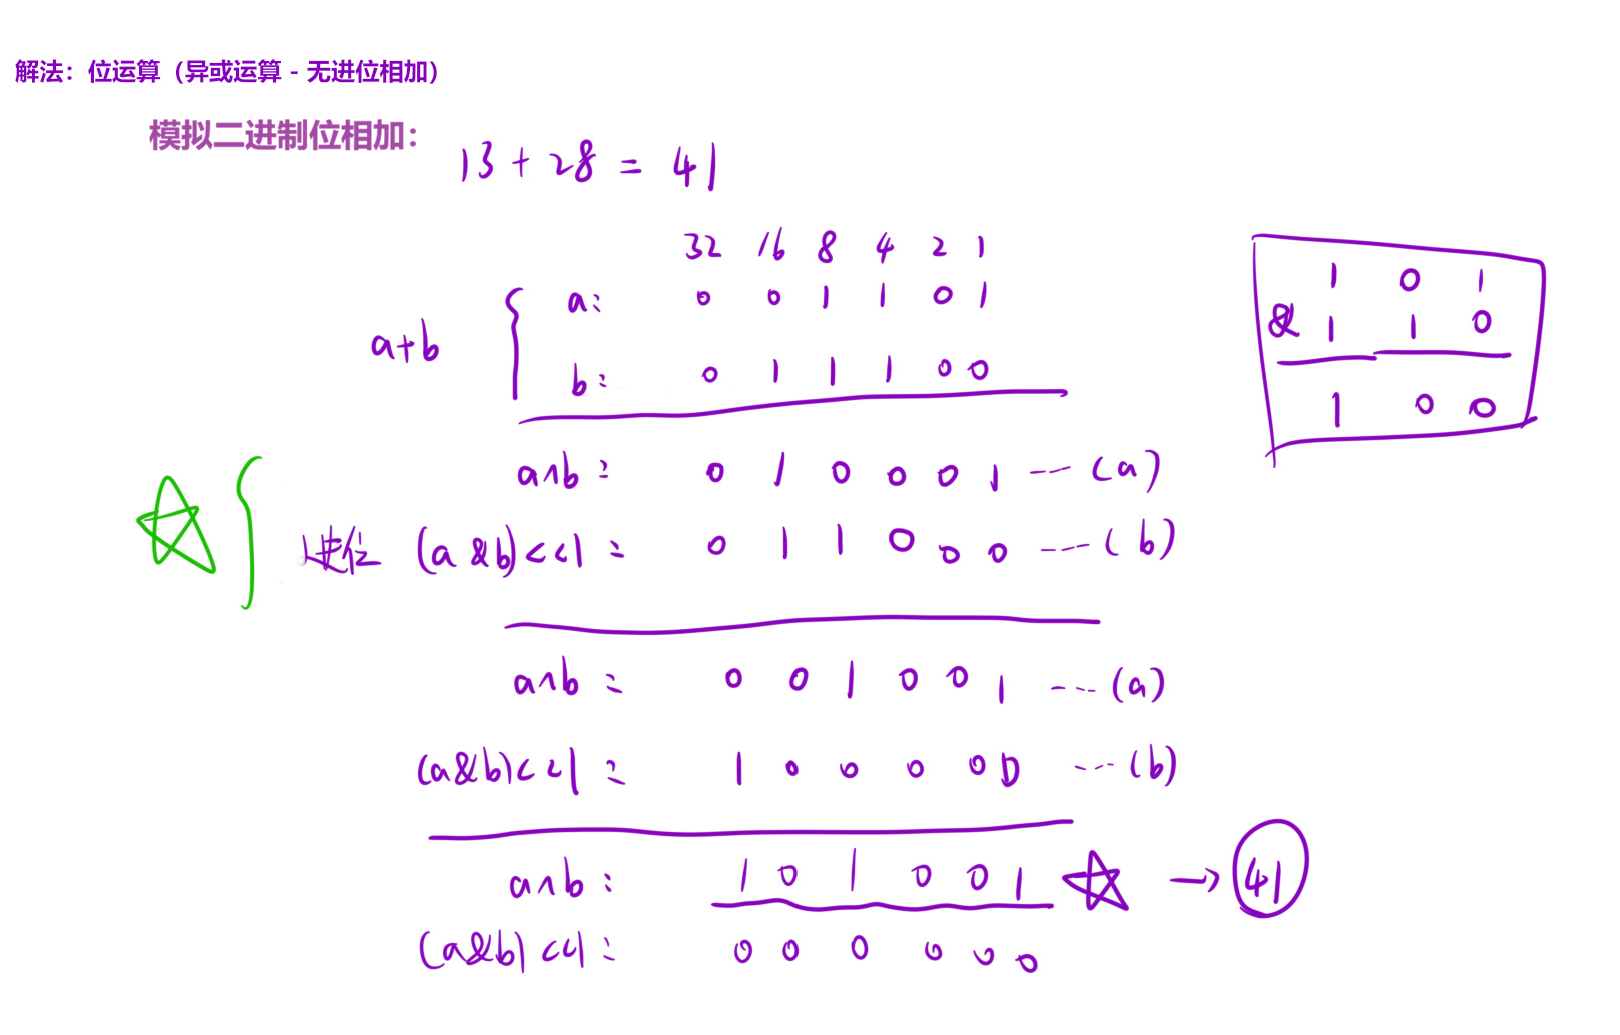 解法：位运算（异或运算 - 无进位相加）
模拟二进制位相加：
13 + 28 = 41
32 16 8 4 2 1
a: 0 0 1 1 0 1
a+b
b: 0 1 1 1 0 0
1 0 1
& 1 1 0
1 0 0
a^b: 0 1 0 0 0 1 --- (a)
进位 (a&b)<<1: 0 1 1 0 0 0 --- (b)
a^b: 0 0 1 0 0 1 --- (a)
(a&b)<<1: 1 0 0 0 0 0 --- (b)
a^b: 1 0 1 0 0 1 ☆ → 41
(a&b)<<1: 0 0 0 0 0 0